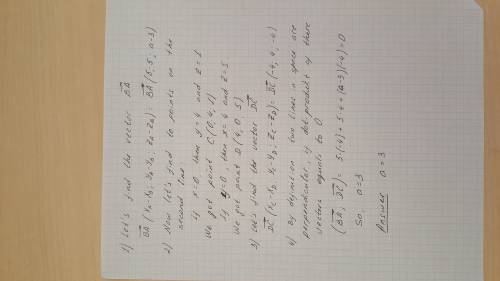 1) Let's find the vector BA
BA (xA-xB; yA-yB; zA-zB) BA (5; 5; a-3)
2) Now let's find to points on the
second line
if x=0, then y=4 and z=1
We got point C(0, 4, 1)
If y=0, then x=4 and z=5
We got point D(4, 0, 5)
3) Let's find the vector DC
DC (xC-xD; yC-yD; zC-zD) = DC (-4; 4; -4)
4) By definition two lines in space are
perpendicular, if dot-product of there
vectors equals to 0
(BA; DC) = 5·(-4) + 5·4 + (a-3)(-4) = 0
So, a=3
Answer a=3